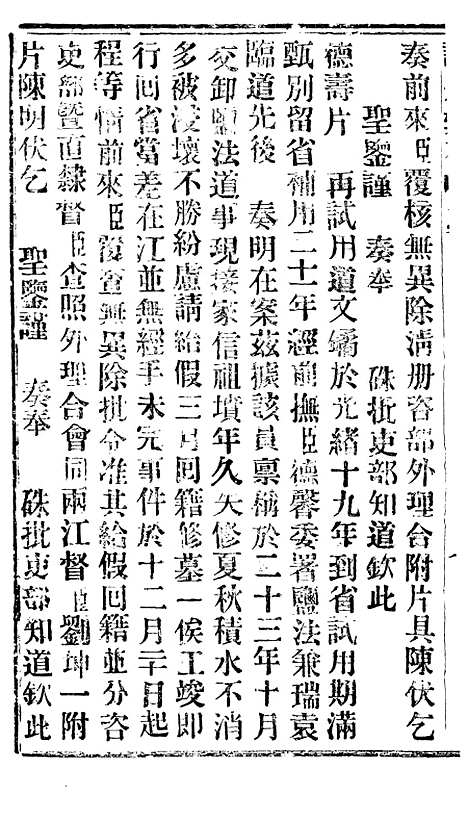 奏前來臣覆核無異除淸册咨部外理合附片具陳伏乞
聖鑒謹 奏奉 硃批吏部知道欽此
德壽片 再試用道文鏞於光緒十九年到省試用期滿
甄別留省補用二十一年經前撫臣德馨委署鹽法兼瑞袁
臨道先後 奏明在案茲據該員禀稱於二十三年十月
交卸鹽法道事現接家信祖墳年久失修夏秋積水不消
多被浸壞不勝紛慮請給假三月回籍修墓一俟工竣即
行回省當差在江並無經手未完事件於十二月二十日起
程等情前來臣覆查無異除批令准其給假回籍並分咨
吏部暨直隸督臣查照外理合會同兩江督臣劉坤一附
片陳明伏乞 聖鑒謹 奏奉 硃批吏部知道欽此